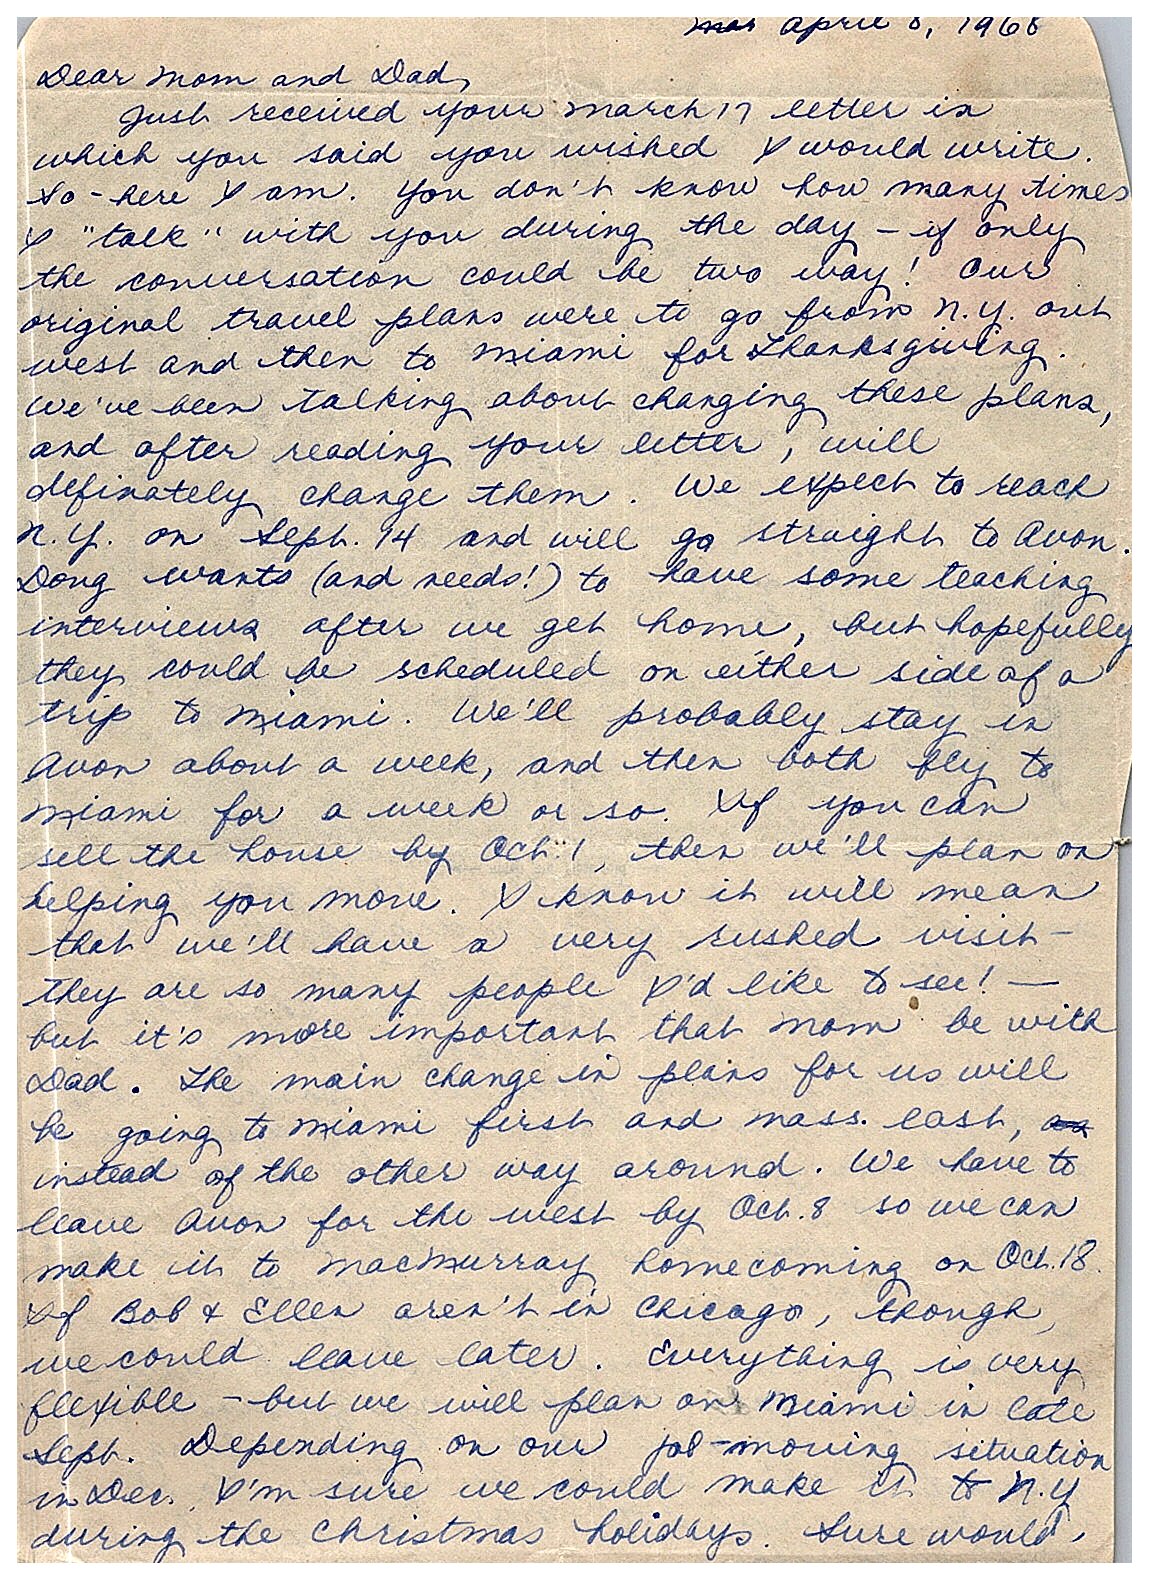 Mar April 8, 1968
Dear Mom and Dad,
Just received your March 17 letter in
which you said you wished I would write.
So - here I am. You don't know how many times
I "talk" with you during the day - if only
the conversation could be two way! Our
original travel plans were to go from N.Y. out
west and then to Miami for Thanksgiving.
We've been talking about changing these plans,
and after reading your letter, will
definately change them. We expect to reach
N.Y. on Sept. 14 and will go straight to Avon.
Doug wants (and needs!) to have some teaching
interviews after we get home, but hopefully
they could be scheduled on either side of a
trip to Miami. We'll probably stay in
Avon about a week, and then both fly to
Miami for a week or so. If you can
sell the house by Oct. 1, then we'll plan on
helping you move. I know it will mean
that we'll have a very rushed visit -
they are so many people I'd like to see! -
but it's more important that Mom be with
Dad. The main change in plans for us will
be going to Miami first and Mass. last, as
instead of the other way around. We have to
leave Avon for the west by Oct. 8 so we can
make it to MacMurray homecoming on Oct. 18.
If Bob & Ellen aren't in Chicago, though,
we could leave later. Everything is very
flexible - but we will plan on Miami in late
Sept. Depending on our job-moving situation
in Dec., I'm sure we could make it to N.Y
during the Christmas holidays. Sure would,